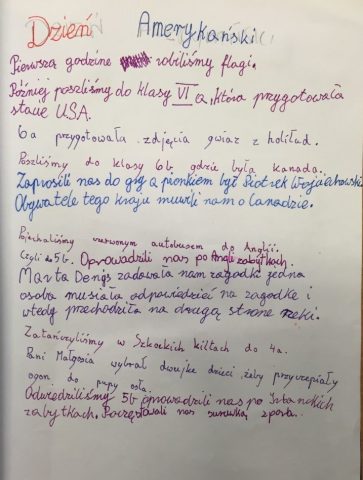 Dzień Amerykański
Pierwszą godzine robiliśmy flagi.
Później poszliśmy do klasy VI a, która przygotowała
stacje USA.
6a przygotowała zdjęcia gwiaz z holiłud.
Poszliśmy do klasy 6b gdzie była kanada.
Zaprosili nas do gry a pionkiem był Piotrek
Obywatele tego kraju muwili nam o Canadzie.
Pojechaliśmy czerwonym autobusem do Anglii.
Czyli do 5b. Oprowadzili nas po Angli zabytkach.
Marta Denis zadawała nam zagadki jedna
osoba musiała odpowiedzieć na zagadkę i
wtedy przechodziła na drugą strone rzeki.
Zatańczyliśmy w Szkockich kiltach do 4a.
Pani Małgosia wybrał dwujke dzieci żeby przyczepiały
ogon do pupy osła.
Odwiedziliśmy 5b oprowadzili nas po
zabytkach. Poczęstowali nas surówką z pora.